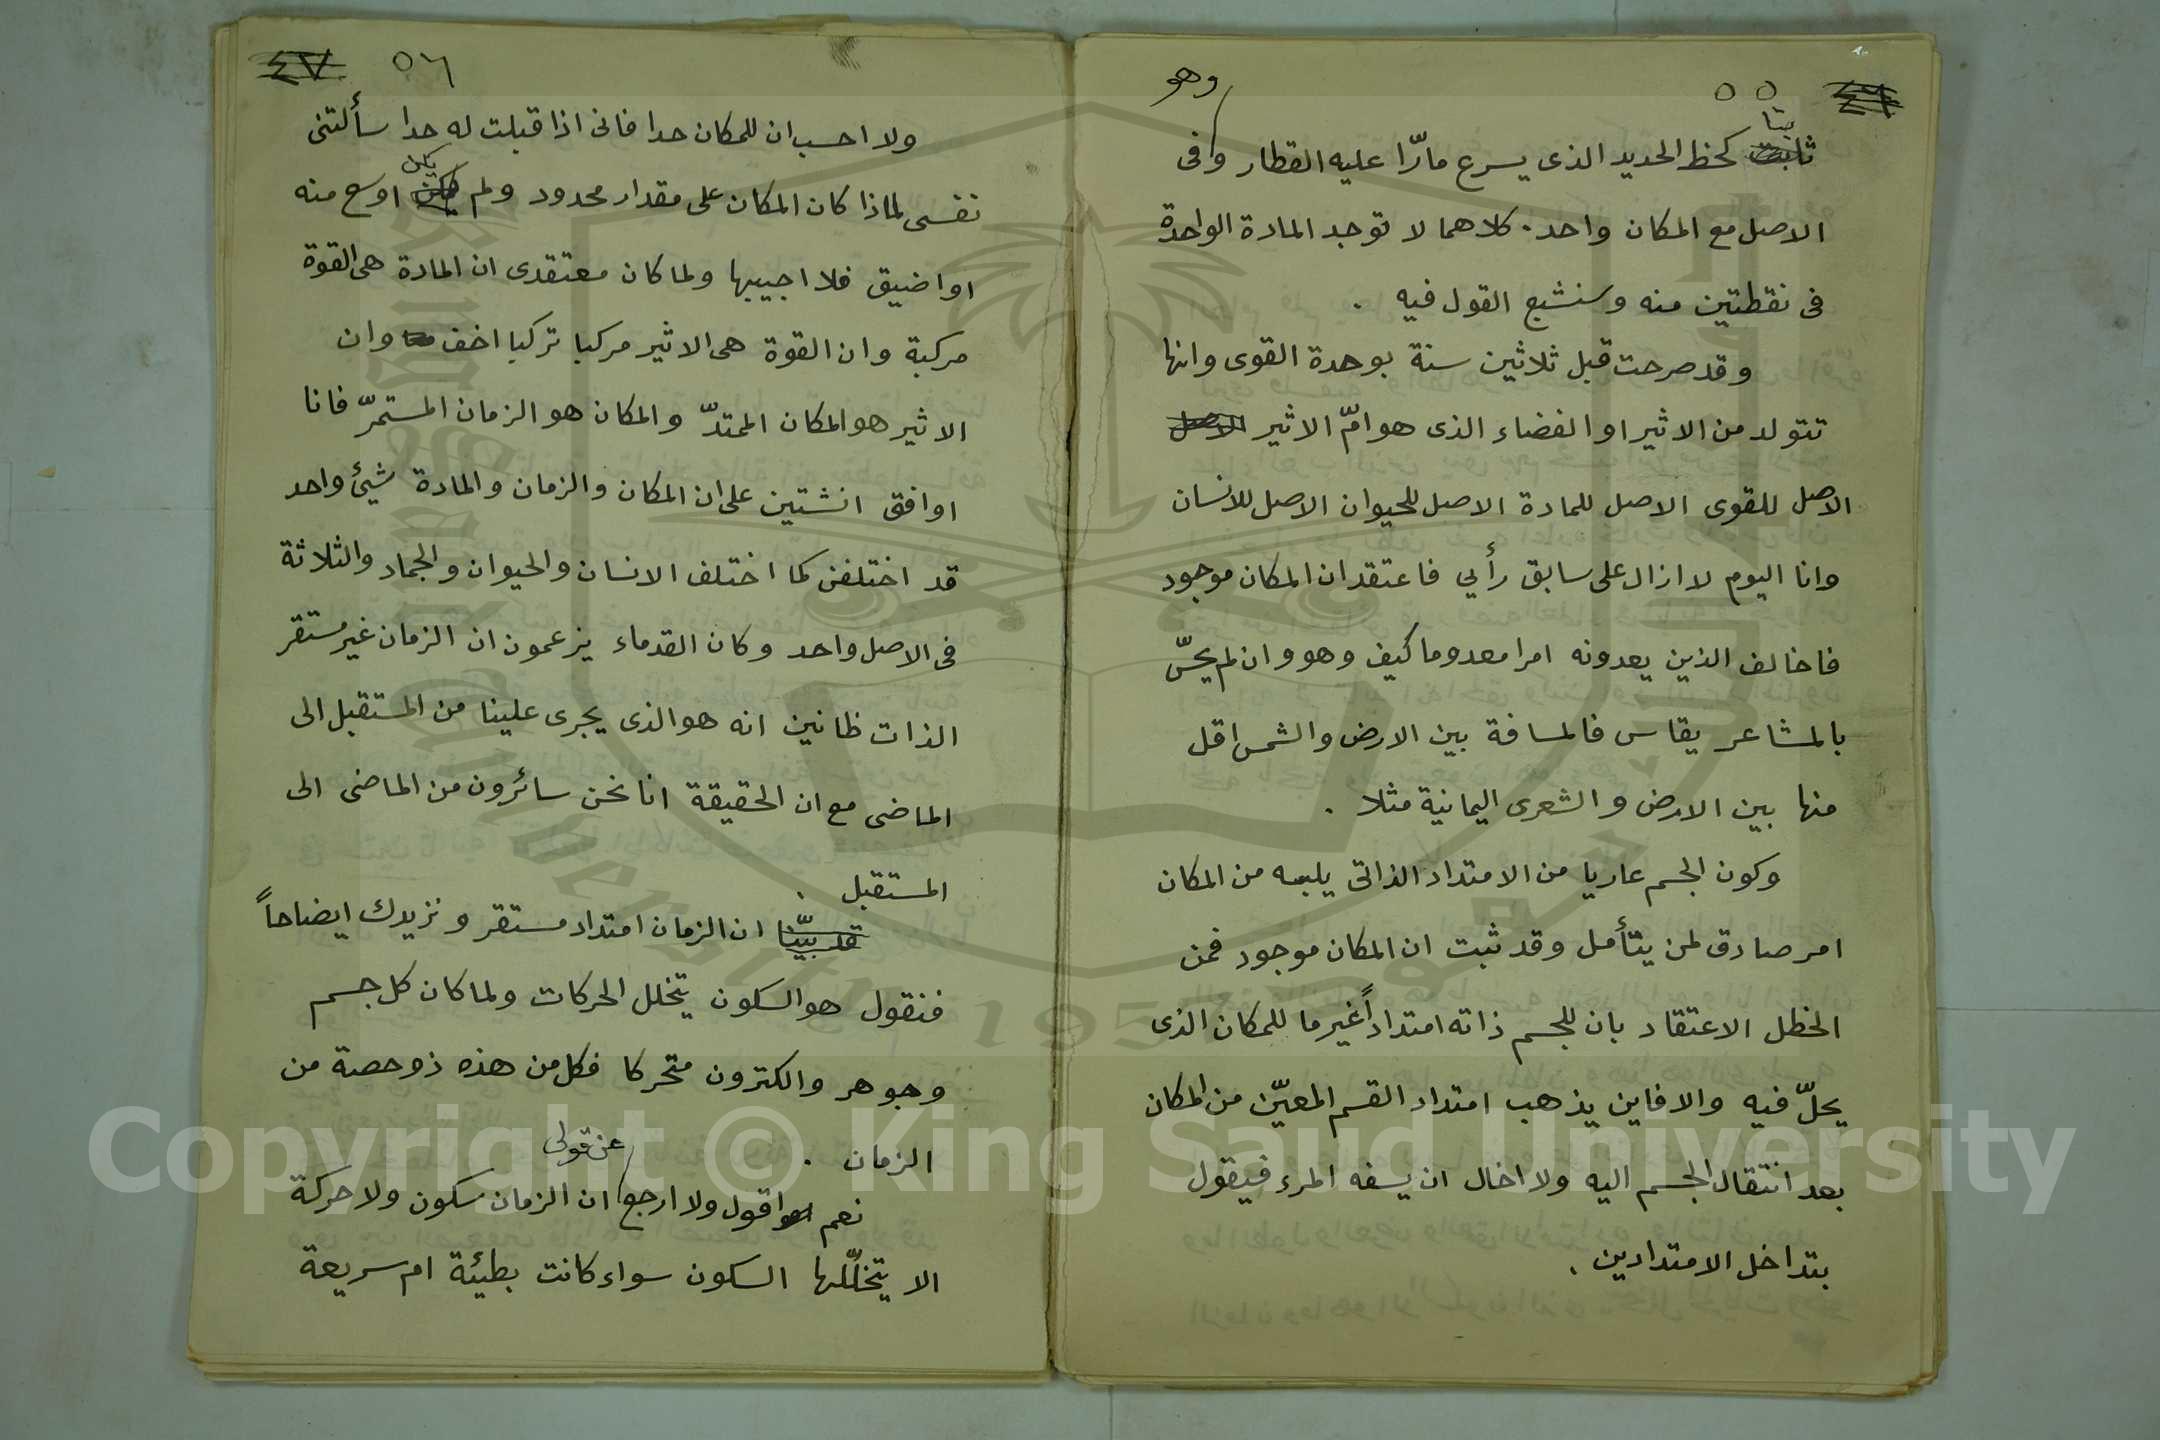 ٥٥
ثابتا كخط الحديد الذى يسرع مارّا عليه القطار وهو وفى
الاصل مع المكان واحد . كلاهما لا توجد المادة الواحدة
فى نقطتين منه وسنشبع القول فيه .
وقد صرحت قبل ثلاثين سنة بوحدة القوى وانها
تتولد من الاثير او الفضاء الذى هو امّ الاثير الاصل
الاصل للقوى الاصل للمادة الاصل للحيوان الاصل للانسان
وانا اليوم لا ازال على سابق رأيي فاعتقد ان المكان موجود
فاخالف الذين يعدونه امرا معدوما كيف وهو وان لم يحسّ
بالمشاعر يقاس فالمسافة بين الارض والشمس اقل
منها بين الارض والشعرى اليمانية مثلا .
وكون الجسم عاريا من الامتداد الذاتى يلبسه من المكان
امر صادق لمن يتأمل وقد ثبت ان المكان موجود فمن
الخطل الاعتقاد بان للجسم ذاته امتداداً غير ما للمكان الذى
يحلّ فيه والا فاين يذهب امتداد القسم المعيّن من المكان
بعد انتقال الجسم اليه ولا اخال ان يسفه المرء فيقول
بتداخل الامتدادين .
٥٦
٤٧
ولا احسب ان للمكان حدا فانى اذا قبلت له حدا سألتنى
نفسى لماذا كان المكان على مقدار محدود ولم يكن اوسع منه
او اضيق فلا اجيبها ولما كان معتقدى ان المادة هى القوة
مركبة وان القوة هى الاثير مركبا تركبا اخف وان
الاثير هو المكان الممتدّ والمكان هو الزمان المستمرّ فانا
اوافق انشتين على ان المكان والزمان والمادة شيئ واحد
قد اختلفن كما اختلف الانسان والحيوان والجماد والثلاثة
فى الاصل واحد وكان القدماء يزعمون ان الزمان غير مستقر
الذات ظانين انه هو الذى يجرى علينا من المستقبل الى
الماضى مع ان الحقيقة انا نحن سائرون من الماضى الى
المستقبل .
قد بيّنا ان الزمان امتداد مستقر ونزيدك ايضاحاً
فنقول هو السكون يتخلل الحركات ولما كان كل جسم
وجوهر والكترون متحركا فكل من هذه ذو حصة من
الزمان .
نعم اقول ولا ارجع عن قولى ان الزمان سكون ولا حركة
الا يتخلّلها السكون سواء كانت بطيئة ام سريعة
Copyright © King Saud University